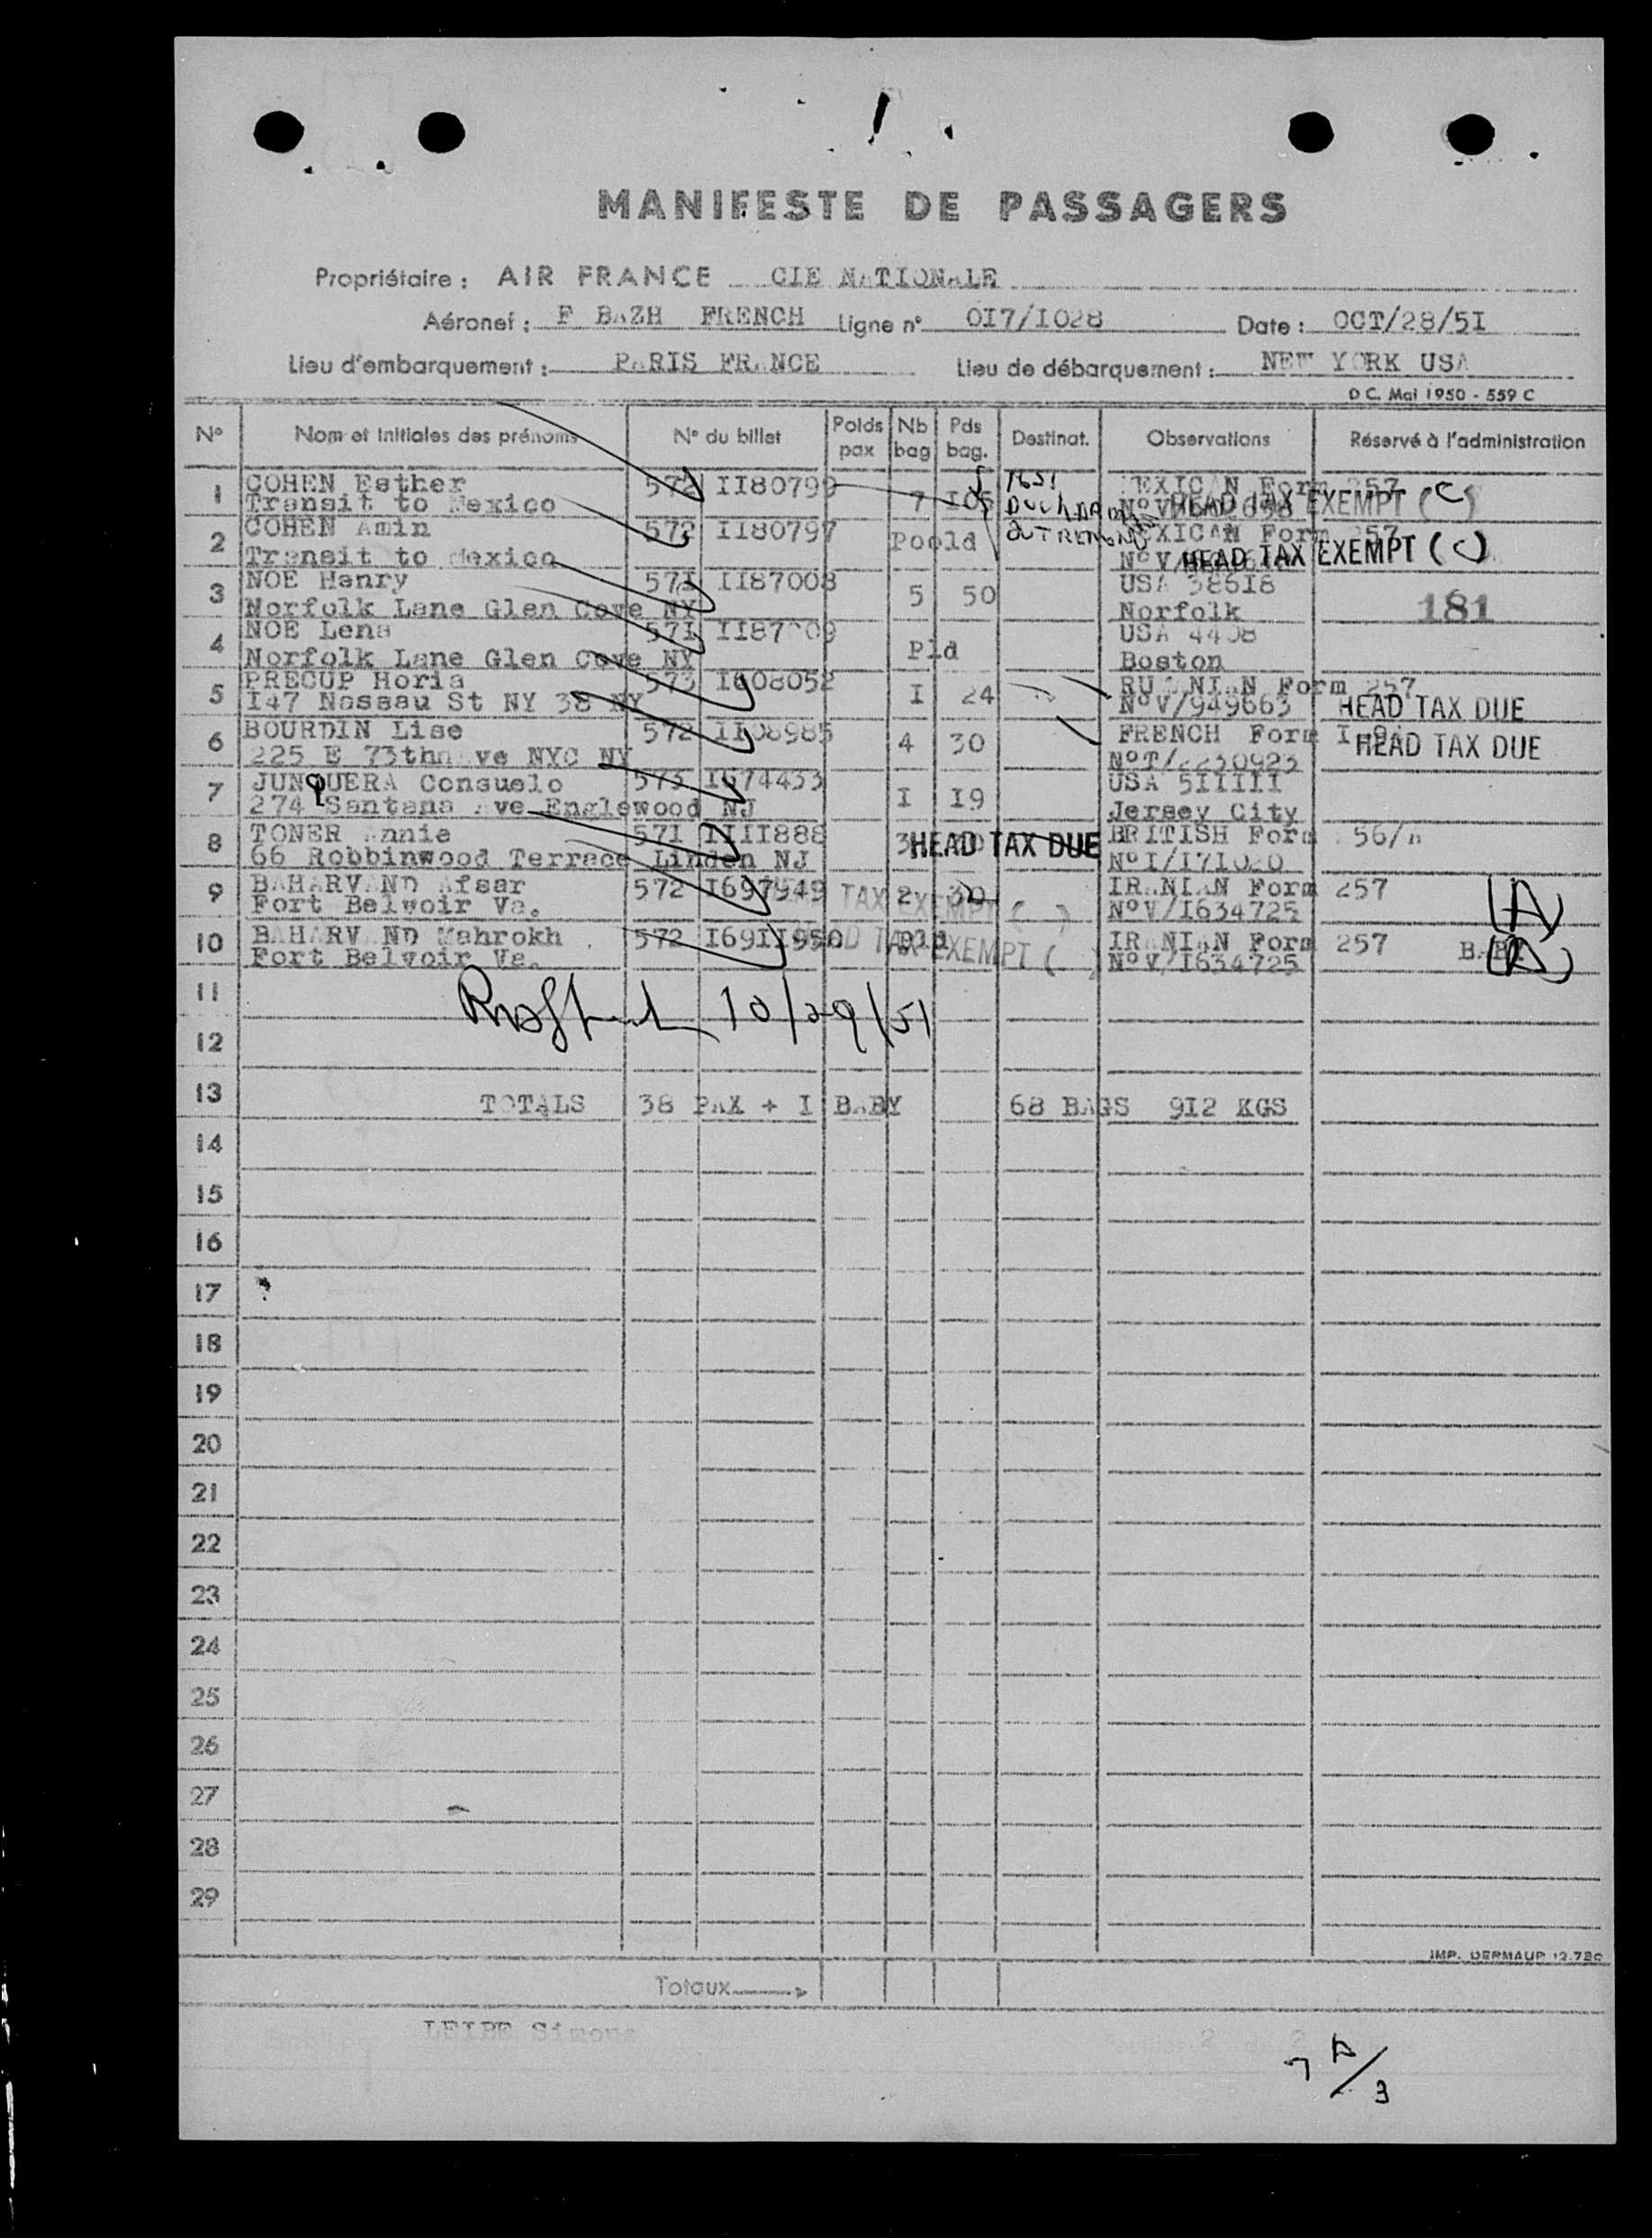 MANIFESTE DE PASSAGERS
Propriétaire : AIR FRANCE CIE NATIONALE
Aéronef : F BAZH FRENCH Ligne n° OI7/IO28 Date : OCT/28/5I
Lieu d'embarquement : PARIS FRANCE Lieu de débarquement : NEW YORK USA
D C. Mai 1950 - 559 C
N° Nom et Initiales des prénoms N° du billet Poids pax Nb bag Pds bag. Destinat. Observations Réservé à l'administration
1 COHEN Esther 572 II80799 7 I05 1651 MEXICAN Form 257
Transit to Mexico HEAD TAX EXEMPT (C)
2 COHEN Amin 572 II80797 Poold MEXICAN Form 257
Transit to Mexico HEAD TAX EXEMPT (C)
3 NOE Henry 57I II87008 5 50 USA 386I8
Norfolk Lane Glen Cove NY Norfolk 181
4 NOE Lena 57I Pld USA
Norfolk Lane Glen Cove NY Boston
5 PRECUP Horia 573 I608052 I 24 RUMANIAN Form 257
I47 Nassau St NY 38 NY N°V/949663 HEAD TAX DUE
6 BOURDIN Lise 572 4 30 FRENCH Form HEAD TAX DUE
225 E 73th Ave NYC NY
7 JUNQUERA Consuelo 573 I674433 I I9 USA 5IIIII
274 Santana Ave Englewood NJ Jersey City
8 TONER Annie 57I IIII888 3 HEAD TAX DUE BRITISH Form
66 Robbinwood Terrace Linden NJ
9 BAHARVAND Afsar 572 I697949 TAX EXEMPT ( ) 2 30 IRANIAN Form 257 (A)
Fort Belvoir Va. N°V/I634725
10 BAHARVAND Mahrokh 572 HEAD TAX EXEMPT ( ) Pld IRANIAN Form 257 BABY (A)
Fort Belvoir Va. N°V/I634725
11
10/29/51
12
13 TOTALS 38 PAX + I BABY 68 BAGS 9I2 KGS
14
15
16
17
18
19
20
21
22
23
24
25
26
27
28
29
IMP. DERMAUP
Totaux
LEIBE Simone